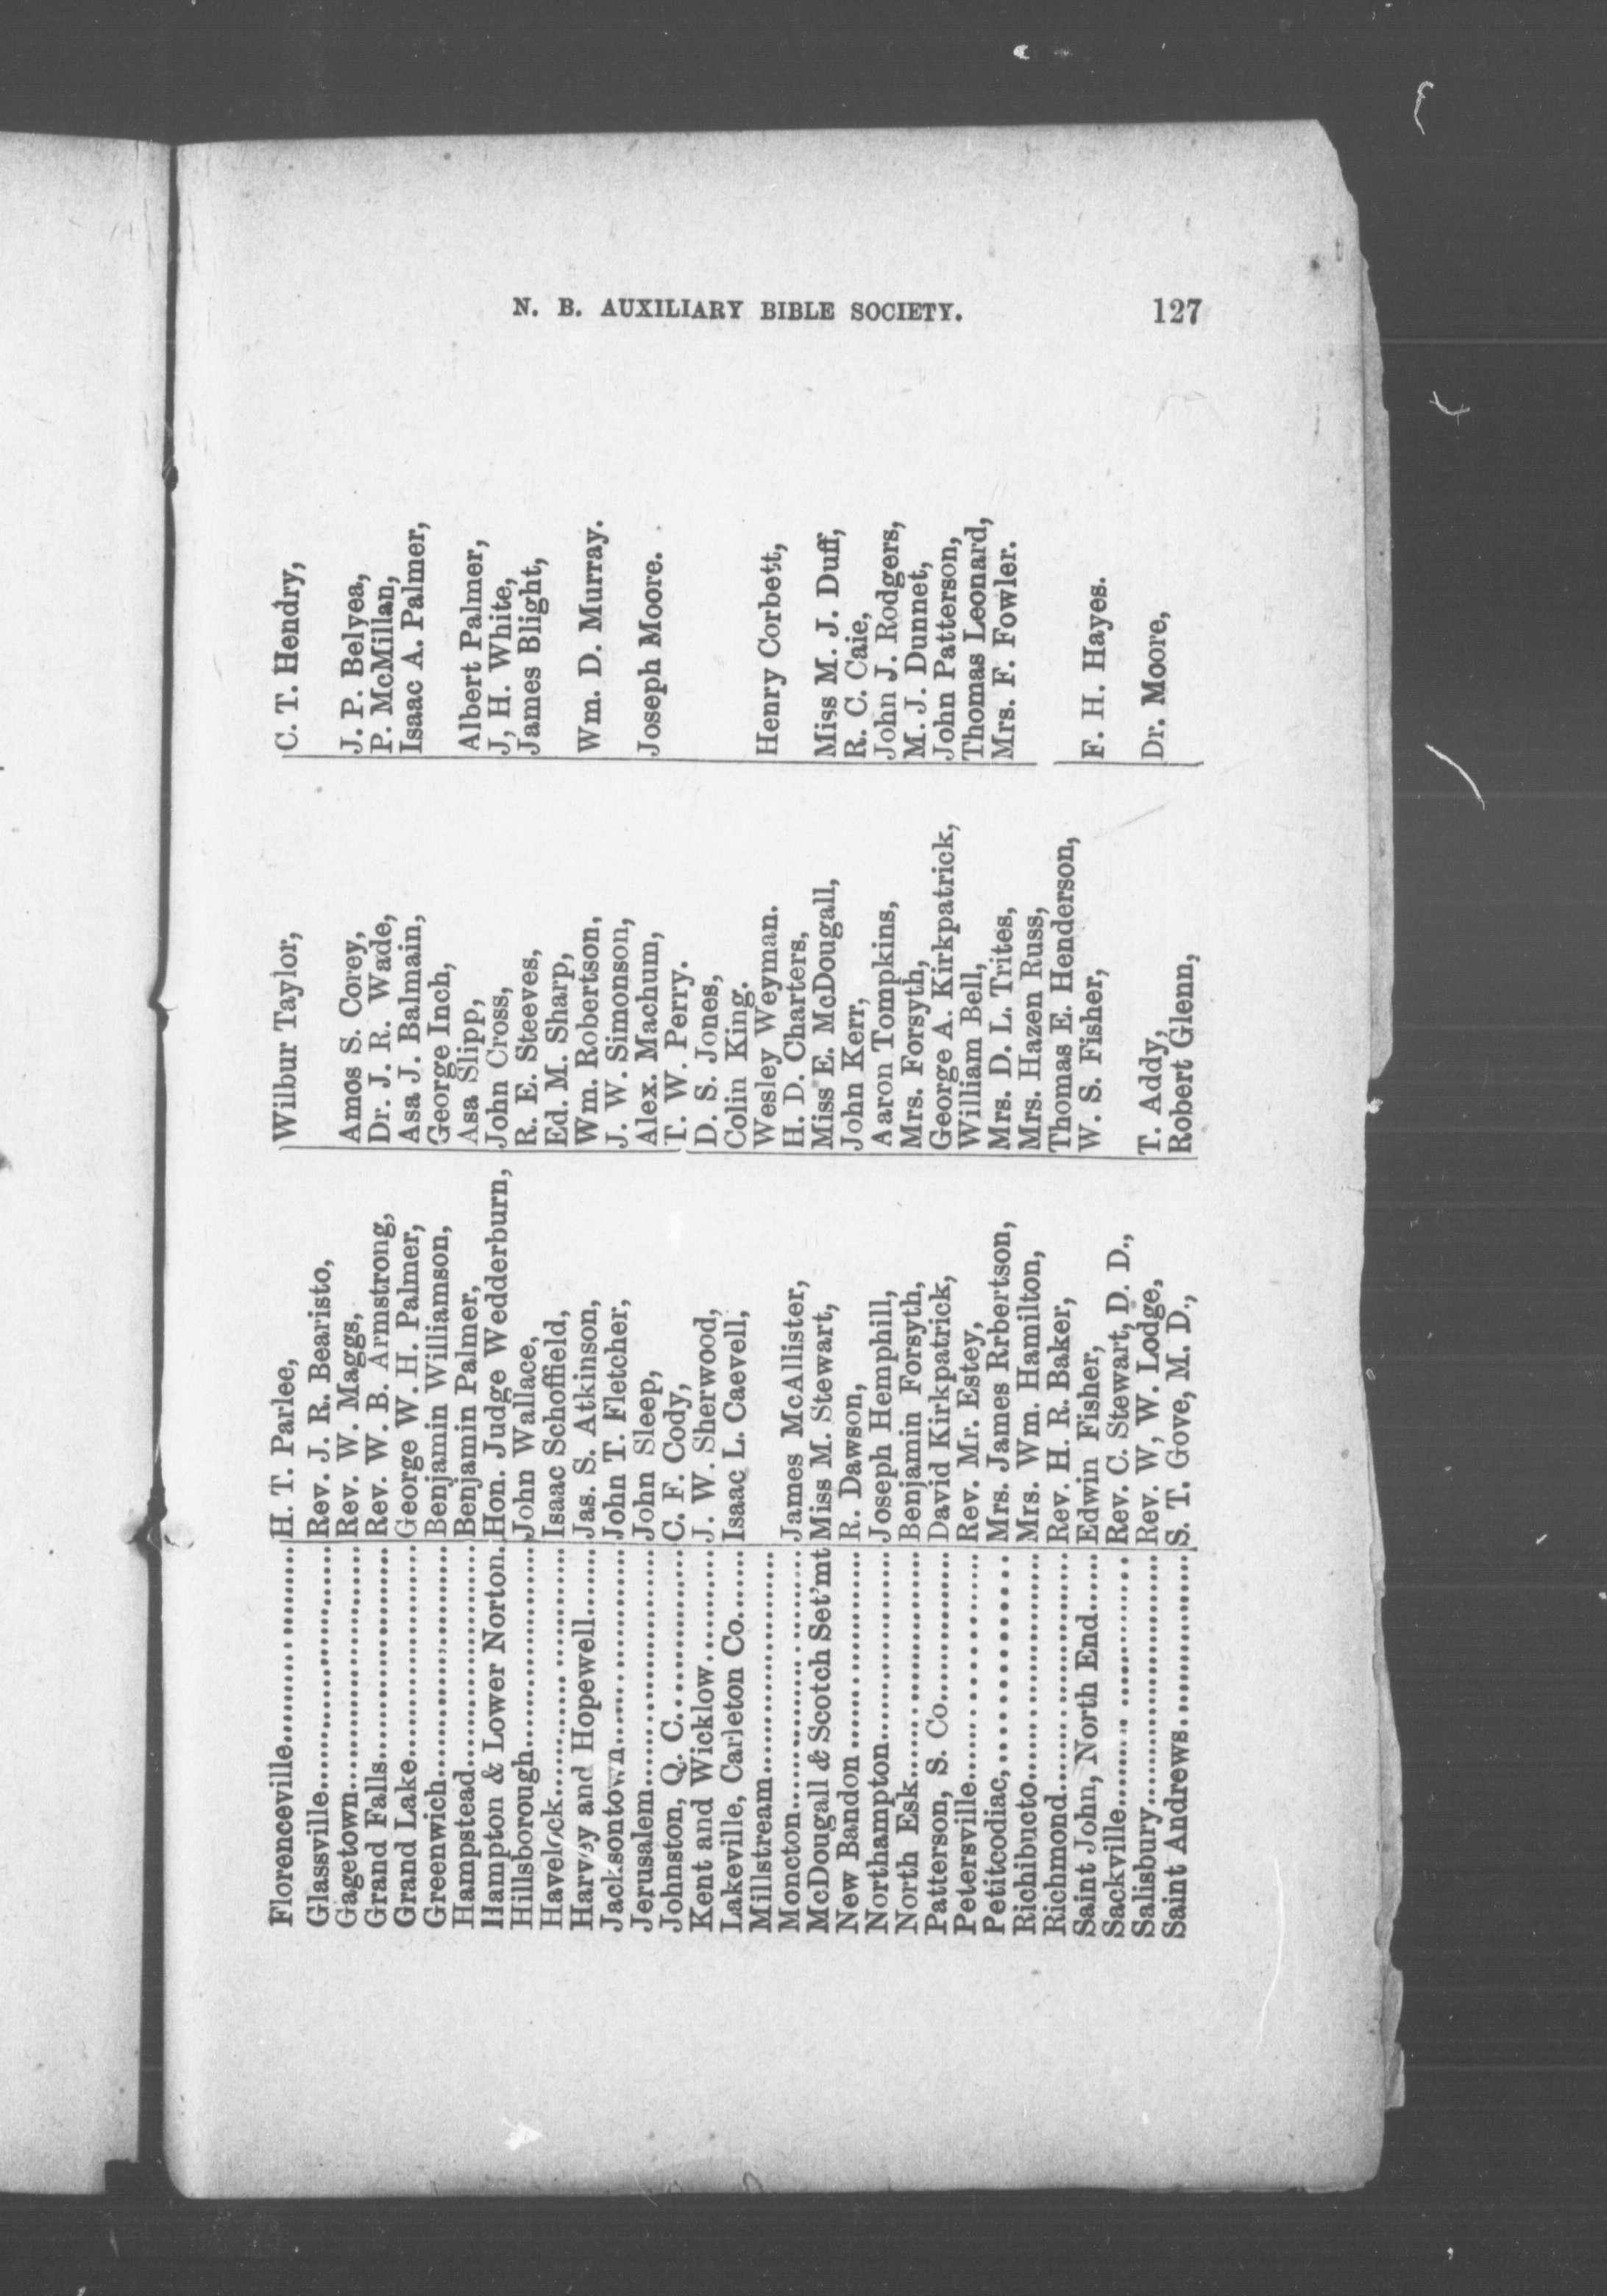 N. B. AUXILIARY BIBLE SOCIETY. 127
Florenceville.................... H. T. Parlee, Wilbur Taylor, C. T. Hendry,
Glassville.................... Rev. J. R. Bearisto,
Gagetown.................... Rev. W. Maggs, Amos S. Corey, J. P. Belyea,
Grand Falls.................... Rev. W. B. Armstrong, Dr. J. R. Wade, P. McMillan,
Grand Lake.................... George W. H. Palmer, Asa J. Balmain, Isaac A. Palmer,
Greenwich.................... Benjamin Williamson, George Inch,
Hampstead.................... Benjamin Palmer, Asa Slipp, Albert Palmer,
Hampton & Lower Norton. Hon. Judge Wedderburn, John Cross, J, H. White,
Hillsborough.................... John Wallace, R. E. Steeves, James Blight,
Havelock.................... Isaac Schoffield, Ed. M. Sharp,
Harvey and Hopewell....... Jas. S. Atkinson, Wm. Robertson, Wm. D. Murray.
Jacksontown.................... John T. Fletcher, J. W. Simonson,
Jerusalem.................... John Sleep, Alex. Machum, Joseph Moore.
Johnston, Q. C.................... C. F. Cody, T. W. Perry.
Kent and Wicklow............ J. W. Sherwood, D. S. Jones,
Lakeville, Carleton Co....... Isaac L. Caevell, Colin King.
Millstream.................... Wesley Weyman. Henry Corbett,
Moncton.................... James McAllister, H. D. Charters,
McDougall & Scotch Set'mt Miss M. Stewart, Miss E. McDougall, Miss M. J. Duff,
New Bandon.................... R. Dawson, John Kerr, R. C. Caie,
Northampton.................... Joseph Hemphill, Aaron Tompkins, John J. Rodgers,
North Esk.................... Benjamin Forsyth, Mrs. Forsyth, M. J. Dunnet,
Patterson, S. Co............... David Kirkpatrick, George A. Kirkpatrick, John Patterson,
Petersville.................... Rev. Mr. Estey, William Bell, Thomas Leonard,
Petitcodiac,.................... Mrs. James Rrbertson, Mrs. D. L. Trites, Mrs. F. Fowler.
Richibucto.................... Mrs. Wm. Hamilton, Mrs. Hazen Russ,
Richmond.................... Rev. H. R. Baker, Thomas E. Henderson,
Saint John, North End...... Edwin Fisher, W. S. Fisher, F. H. Hayes.
Sackville.................... Rev. C. Stewart, D. D.,
Salisbury.................... Rev. W, W. Lodge, T. Addy, Dr. Moore,
Saint Andrews.................... S. T. Gove, M. D., Robert Glenn,